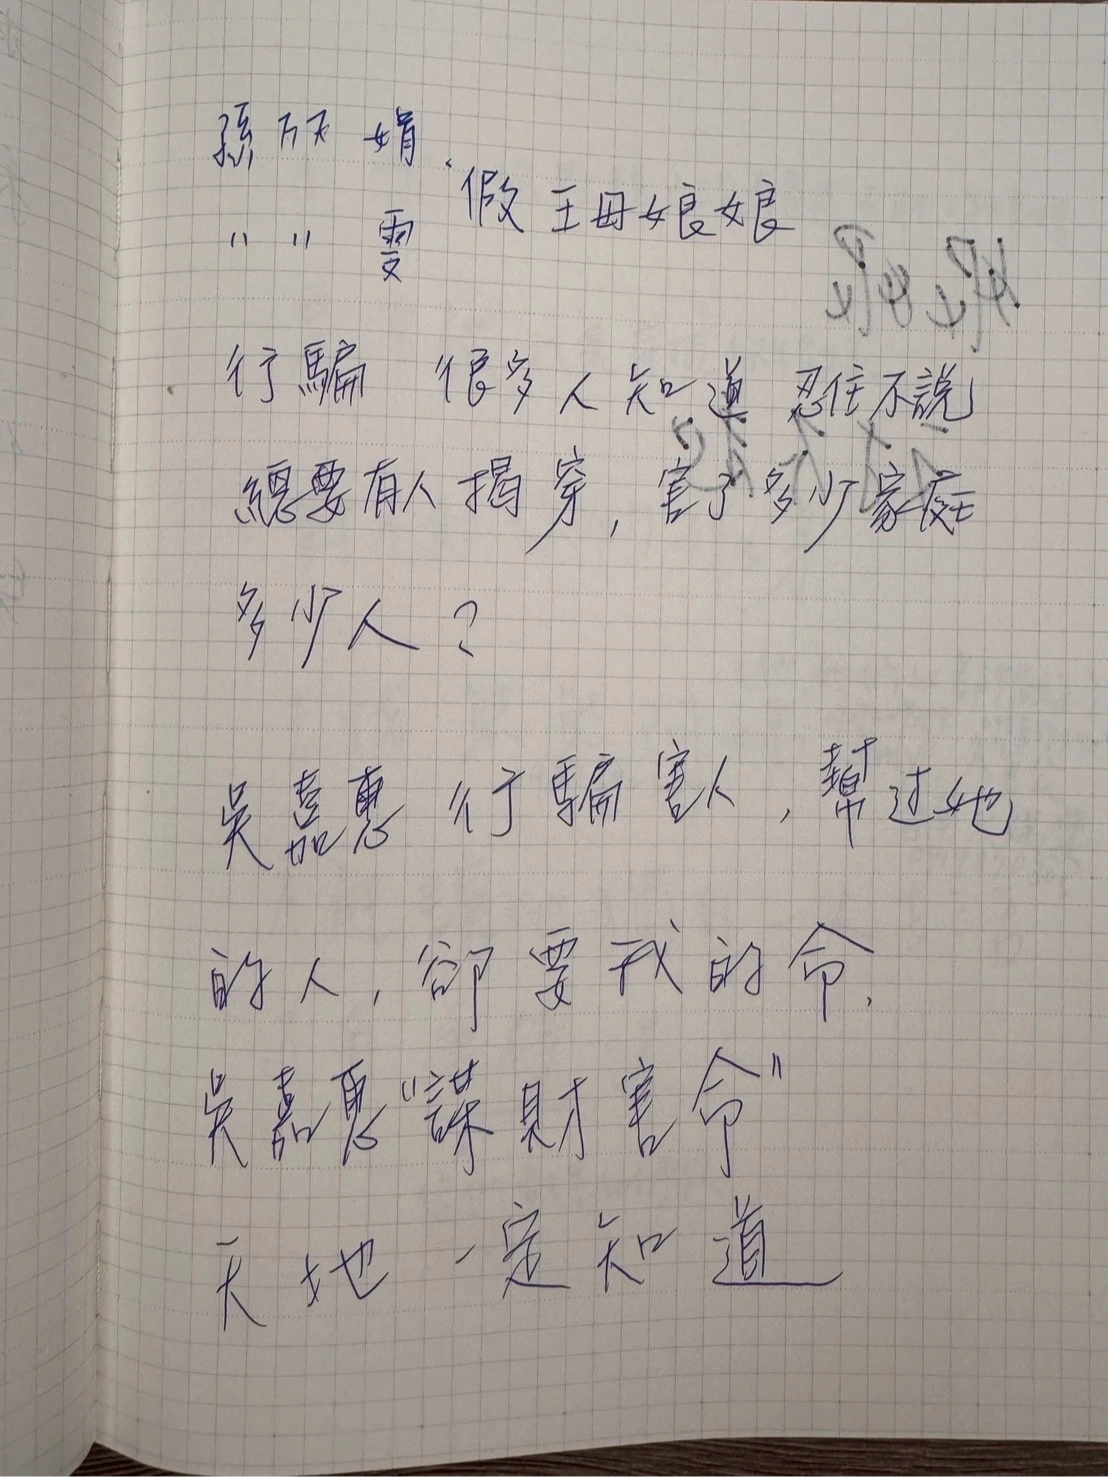 孫欣娟、假王母娘娘
〃 〃 雯
行騙 很多人知道 忍住不說
總要有人揭穿, 害了多少家庭
多少人?
吳嘉惠 行騙害人, 幫过她
的人, 卻要我的命.
吳嘉惠“謀財害命”
天地一定知道